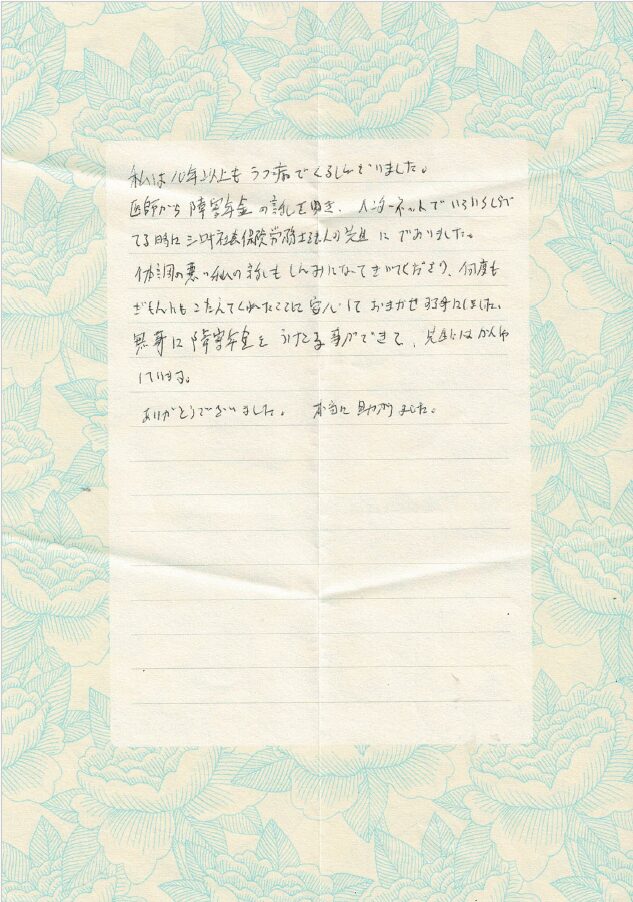 私は10年以上もうつ病でくるしんでいました。
医師から障害年金の話しをゆき、インターネットでいろいろしらべ
てる時に 社会保険労務士法人の先生にであいました。
体調の悪い私の話しもしんみになってきいてくださり、何度も
ぎもんにもこたえてくれたことに安心しておまかせする事にしました。
無事に障害年金をうけとる事ができて、先生にはかんしゃ
しています。
ありがとうございました。 本当に助かりました。